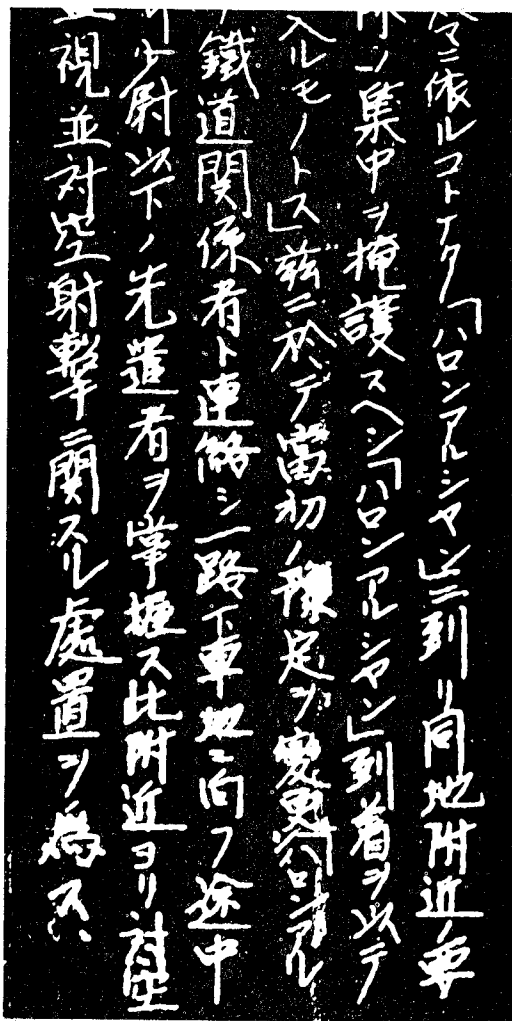 令ニ依ルコトナク「ハロンアルシヤン」ニ到リ同地附近ノ軍
隊ノ集中ヲ掩護スヘシ「ハロンアルシヤン」到着ヲ以テ
入ルモノトス」玆ニ於テ當初ノ豫定ヲ変更「ハロンアル
鐵道関係者ト連絡シ一路下車地ニ向フ途中
少尉以下ノ先遣者ヲ掌握ス比附近ヨリ対空
視並対空射撃ニ関スル處置ヲ為ス